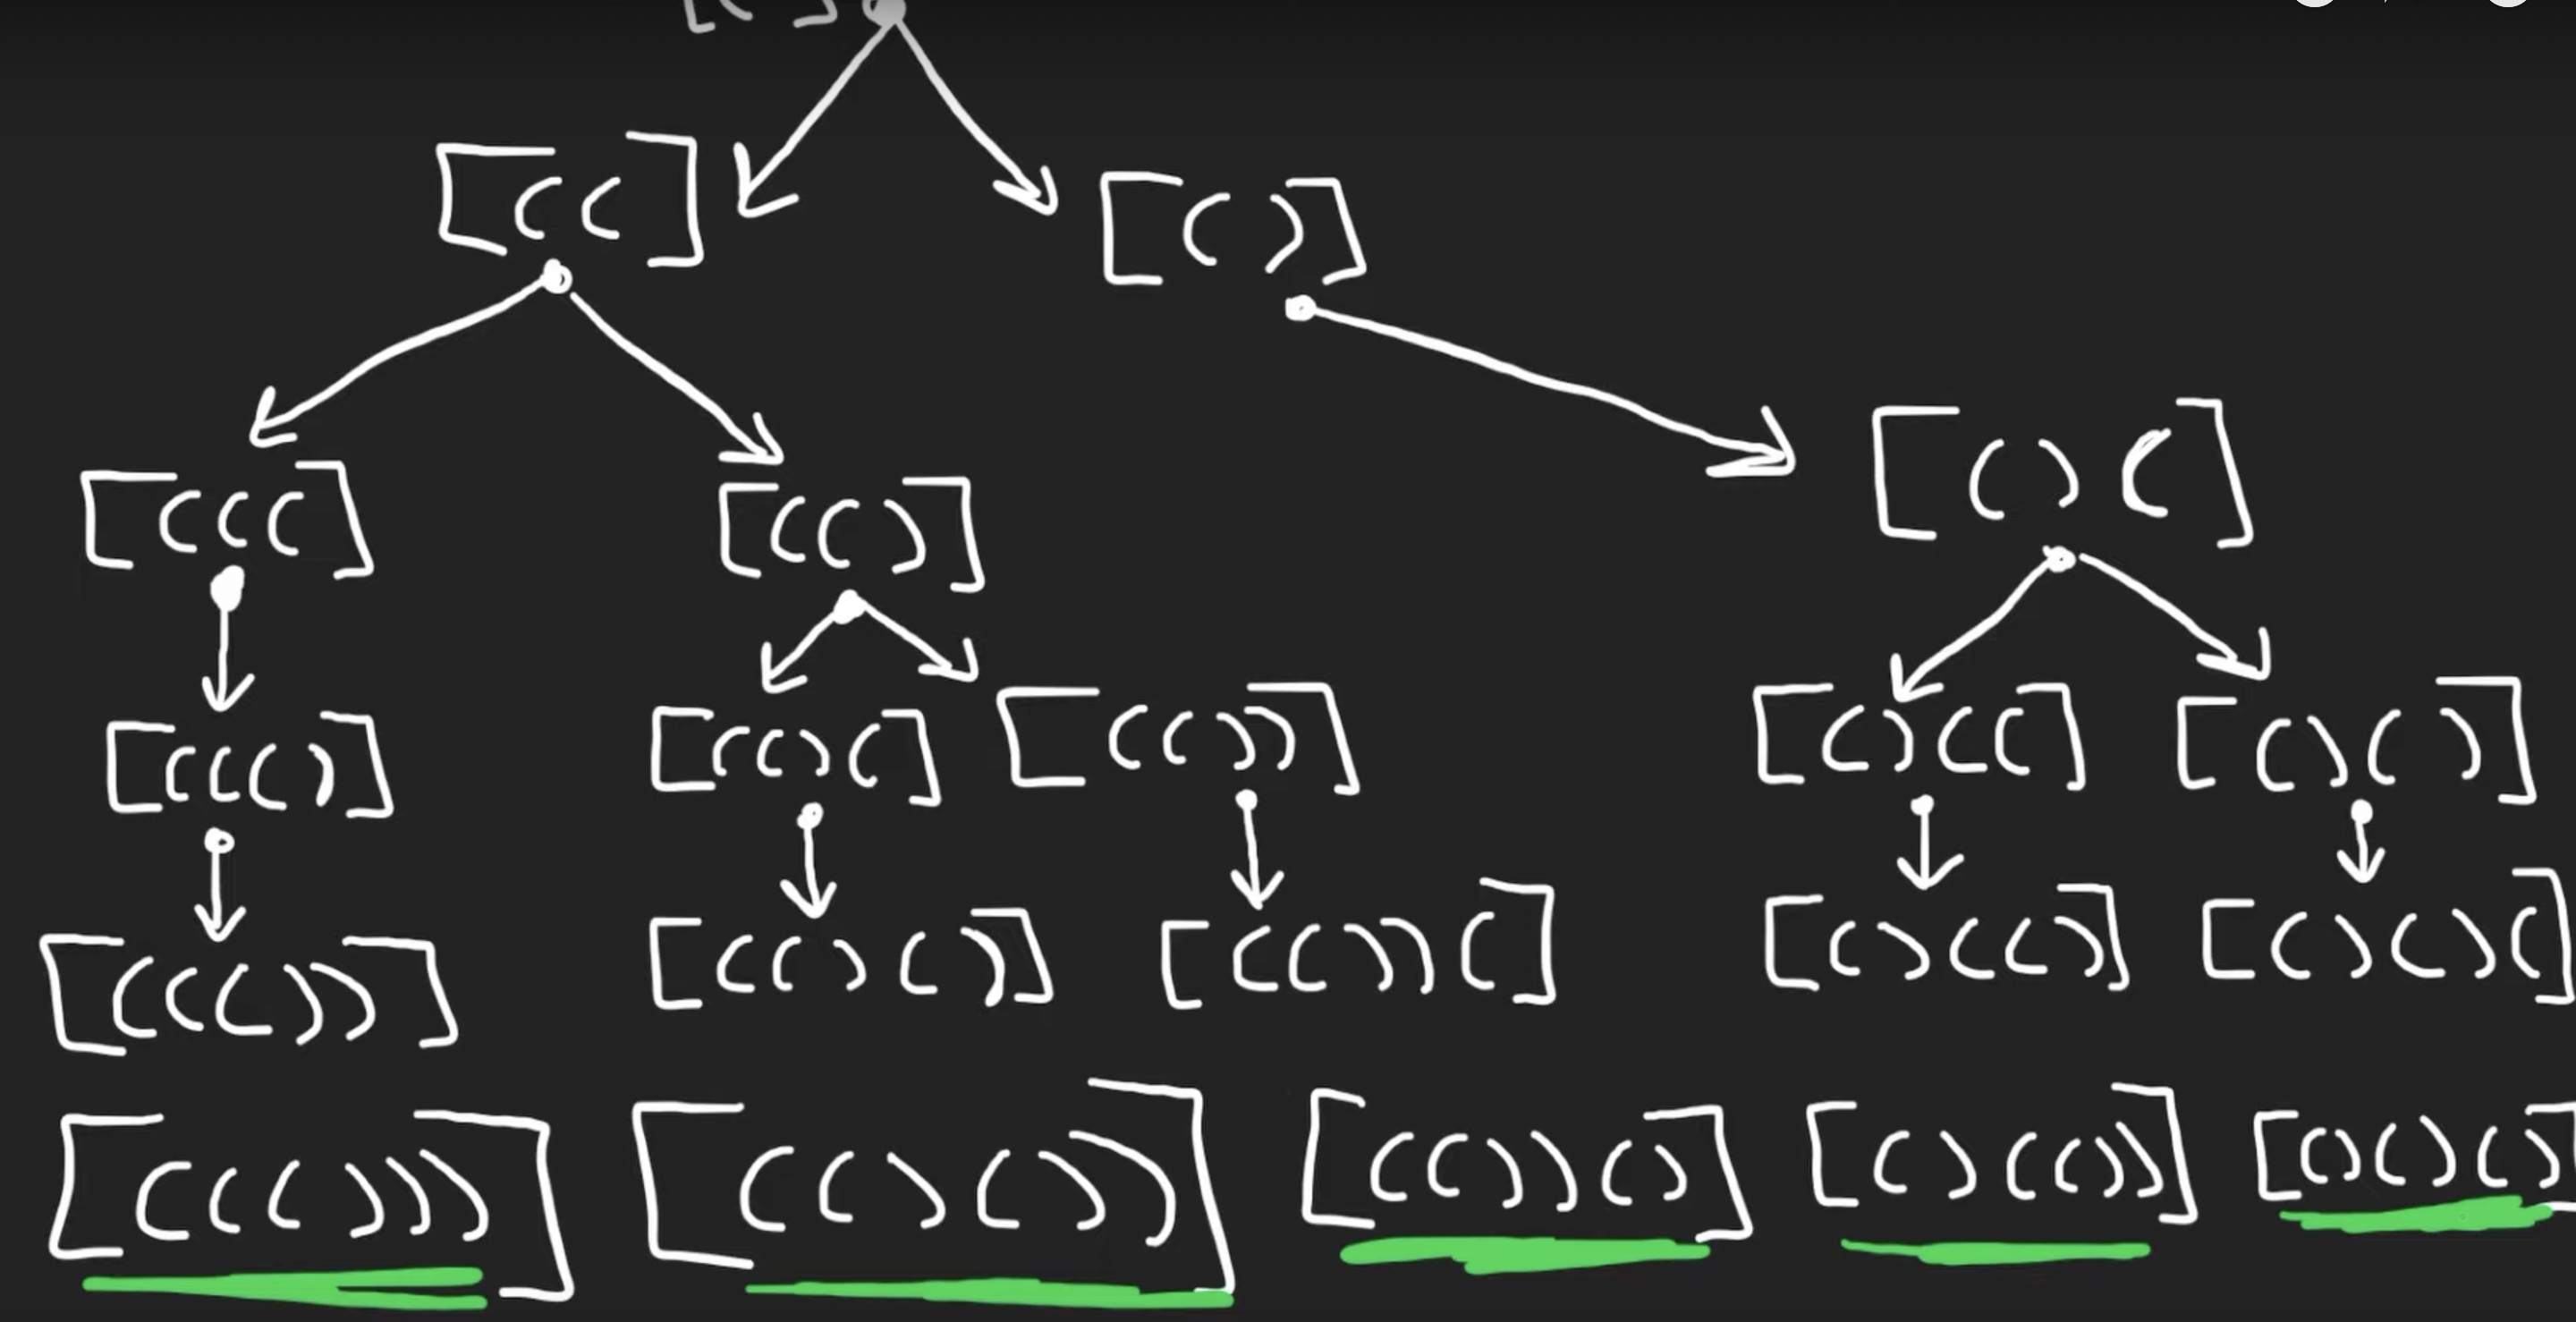 [( ]
[((]
[()]
[(((]
[(()]
[()(]
[((()]
[(()(]
[(())]
[()((]
[()()]
[((())]
[(()()]
[(())(]
[()(()]
[()()(]
[((()))]
[(()())]
[(())()]
[()(())]
[()()()]